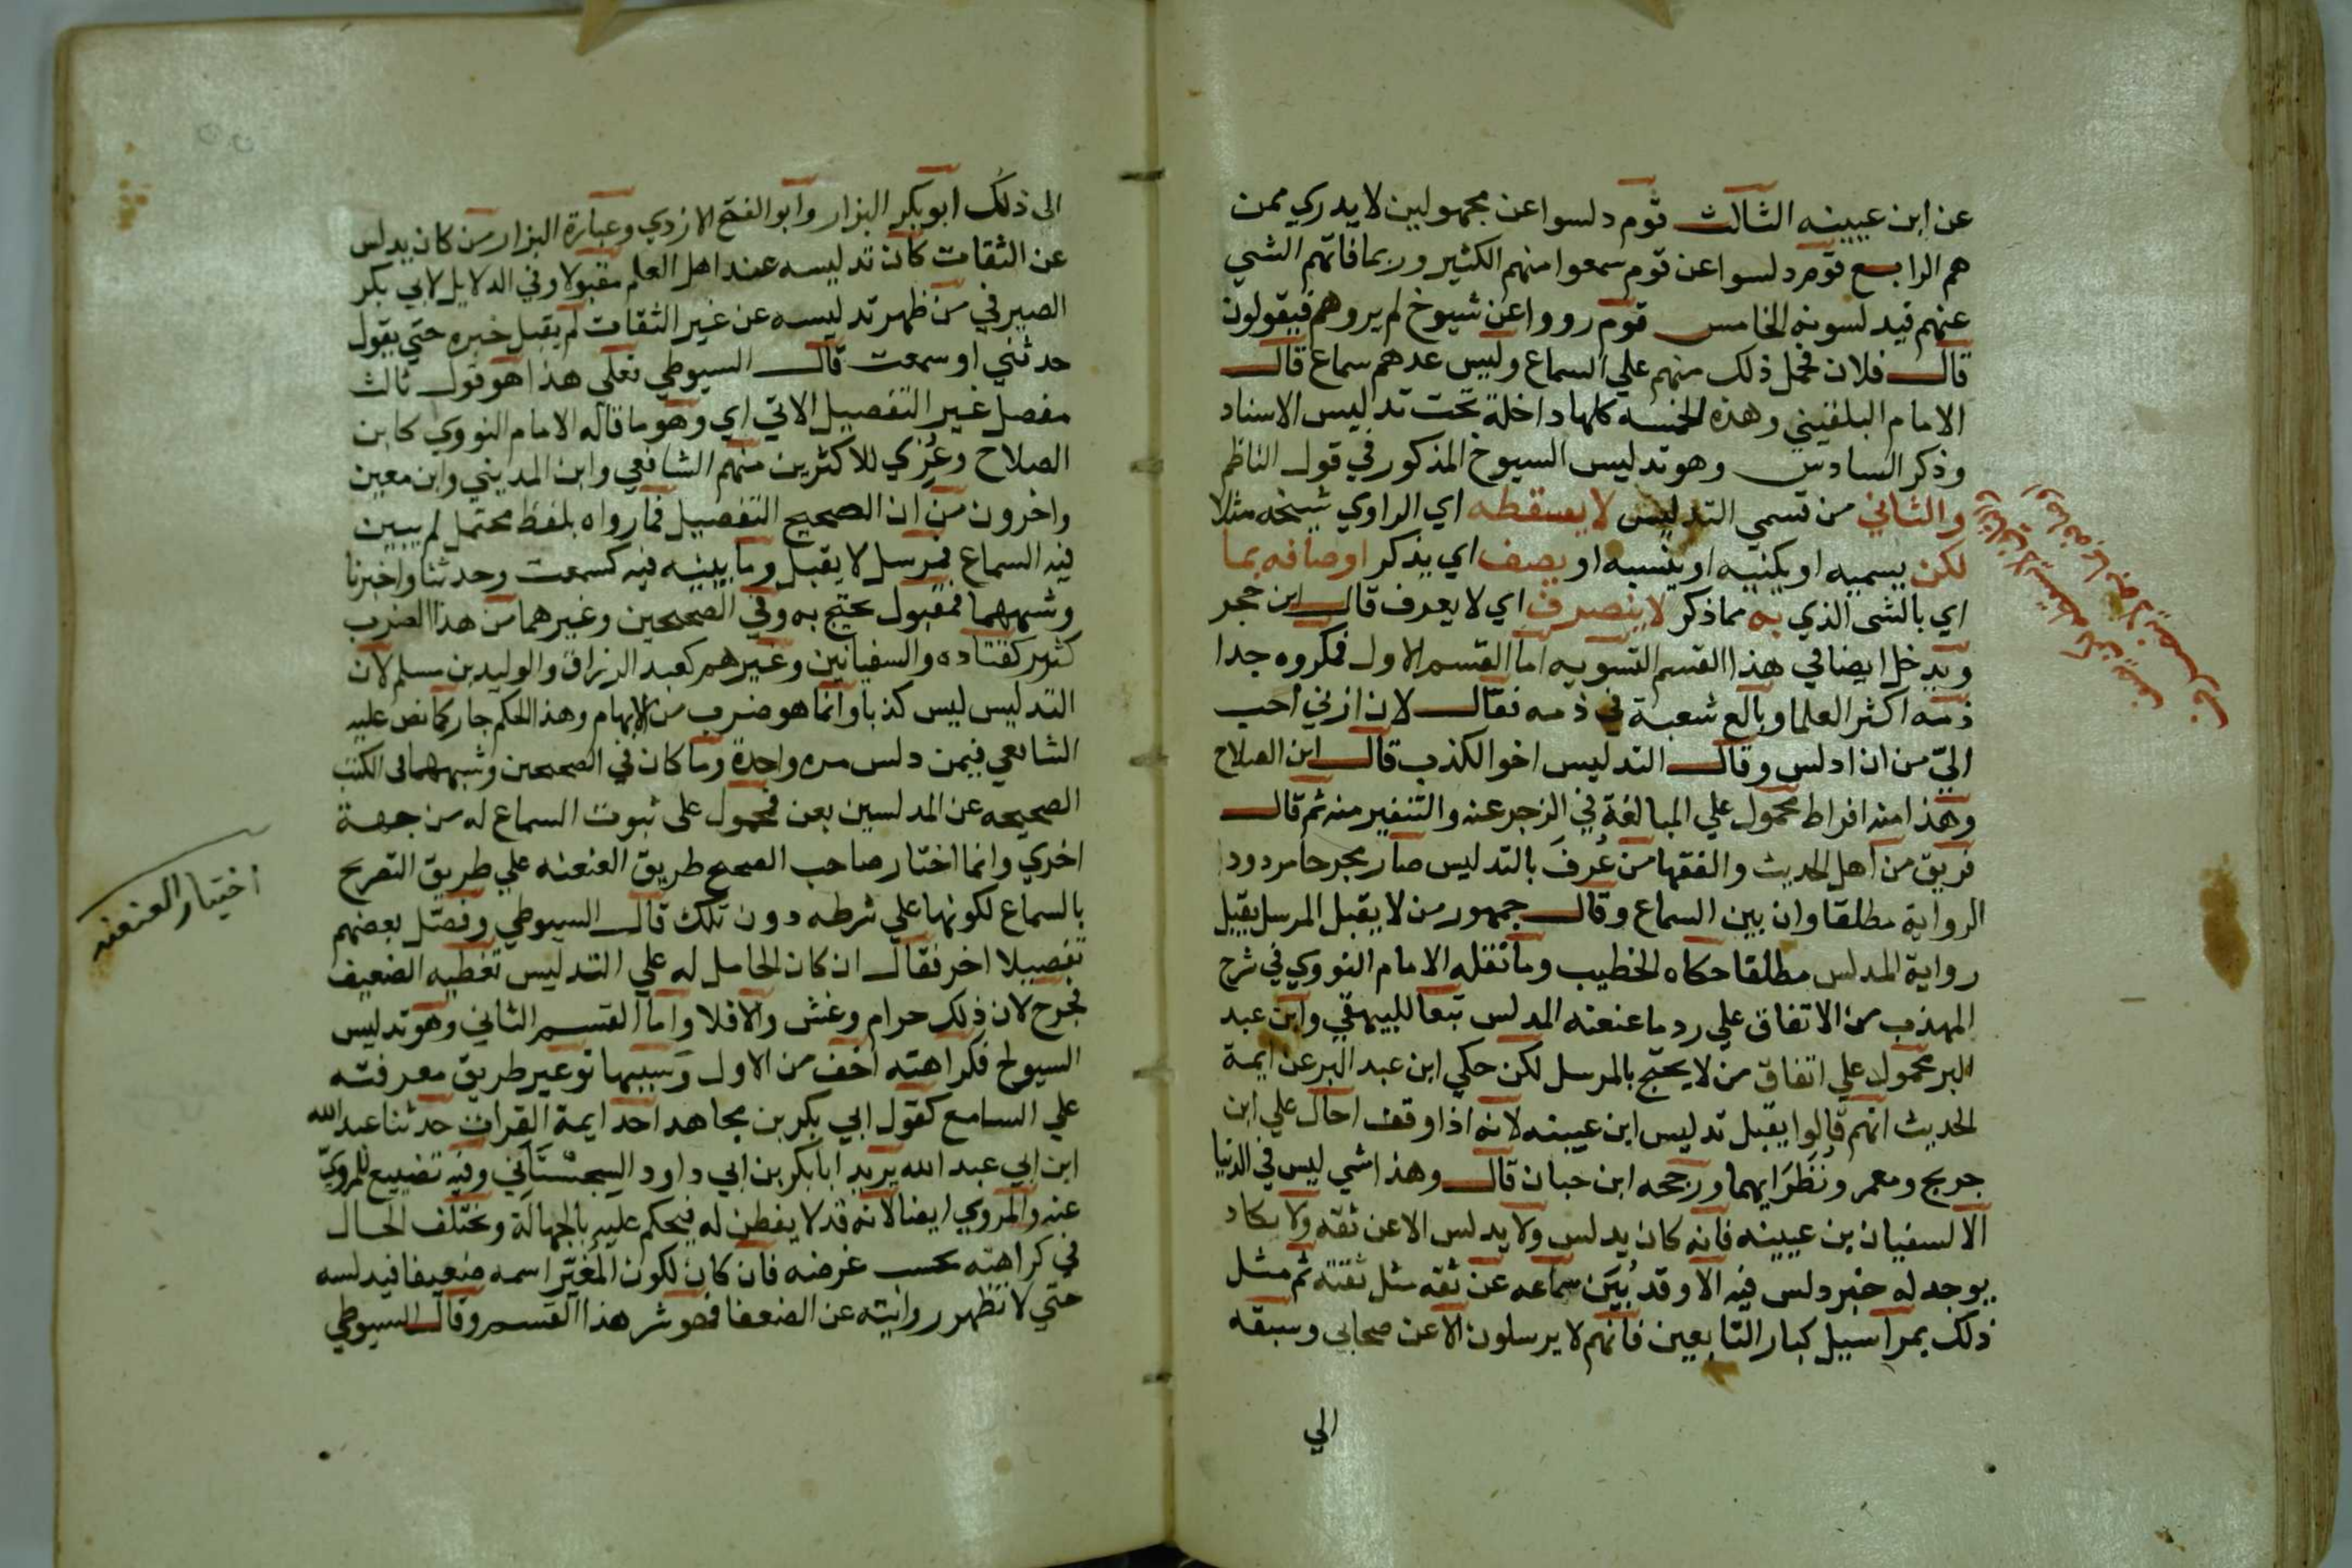 عن ابن عيينه الثالث قوم دلسوا عن مجهولين لا يدري ممن
هم الرابع قوم دلسوا عن قوم سمعوا منهم الكثير وربما فاتهم الشي
عنهم فيدلسونه الخامس قوم رووا عن شيوخ لم يروهم فيقولون
قال فلان فحمل ذلك منهم علي السماع وليس عندهم سماع قال
الامام البلقيني وهذه الخمسه كلها داخلة تحت تدليس الاسناد
وذكر السادس وهو تدليس الشيوخ المذكور في قول الناظم
والثاني من قسمي التدليس لا يسقطه اي الراوي شيخه مثلا
لكن يسميه او يكنيه او ينسبه او يصف اي يذكر اوصافه بما
اي بالشي الذي به مما ذكر لا ينصرف اي لا يعرف قال ابن حجر
ويدخل ايضا في هذا القسم التسويه اما القسم الاول فمكروه جدا
ذمه اكثر العلما وبالغ شعبة في ذمه فقال لان ازني احب
اليّ من ان ادلس وقال التدليس اخو الكذب قال ابن الصلاح
وهذا منه افراط محمول علي المبالغة في الزجر عنه والتنفير منه ثم قال
فريق من اهل الحديث والفقها من عُرفَ بالتدليس صار مجرحا مردود
الرواية مطلقا وان بين السماع وقال جمهور من لا يقبل المرسل يقبل
رواية المدلس مطلقا حكاه الخطيب وما نقله الامام النووي في شرح
المهذب من الاتفاق علي رد ما عنعنه المدلس تبعا للبيهقي وابن عبد
البر محمول علي اتفاق من لا يحتج بالمرسل لكن حكي ابن عبد البر عن ايمة
الحديث انهم قالوا يقبل تدليس ابن عيينه لانه اذا وقف احال علي ابن
جريج ومعمر ونُظَرَايهما ورجحه ابن حبان قال وهذا شي ليس في الدنيا
الا لسفيان بن عيينه فانه كان يدلس ولا يدلس الا عن ثقه ولا يكاد
يوجد له خبر دلس فيه الا وقد بُيَن سماعه عن ثقه مثل ثقته ثم مثل
ذلك بمراسيل كبار التابعين فانهم لا يرسلون الا عن صحابي وسبقه
الي
الى ذلك ابو بكر البزار وابو الفتح الازدي وعبارة البزار من كان يدلس
عن الثقات كان تدليسه عند اهل العلم مقبولا وفي الدلايل لابي بكر
الصيرفي من ظهر تدليسه عن غير الثقات لم يقبل خبره حتي يقول
حدثني او سمعت قال السيوطي فعلى هذا هو قول ثالث
مفصل غير التفصيل الاتي اي وهو ما قاله الامام النووي كابن
الصلاح وعُزي للاكثرين منهم الشافعي وابن المديني وابن معين
واخرون من ان الصحيح التفصيل فما رواه بلفظ محتمل لم يبين
فيه السماع فمرسل لا يقبل وما بينه فيه كسمعت وحدثنا واخبرنا
وشبههما فمقبول يحتج به وفي الصحيحين وغيرهما من هذا الضرب
كثير كقتاده والسفيانين وغيرهم كعبد الرزاق والوليد بن مسلم لان
التدليس ليس كذبا وانما هو ضرب من الايهام وهذا الحكم جار كما نص عليه
الشافعي فيمن دلس مره واحدة وما كان في الصحيحين وشبههما في الكتب
الصحيحه عن المدلسين بعن فمحمول على ثبوت السماع له من جهة
اخري وانما اختار صاحب الصحيح طريق العنعنه علي طريق التصريح
بالسماع لكونها علي شرطه دون تلك قال السيوطي وفصّل بعضهم
تفصيلا اخر فقال ان كان الحامل له علي التدليس تغطيه الضعيف
فجرح لان ذلك حرام وغش والا فلا واما القسم الثاني وهو تدليس
الشيوخ فكراهته اخف من الاول وسببها توعير طريق معرفته
علي السامع كقول ابي بكر بن مجاهد احد ايمة القراات حدثنا عبد الله
ابن ابي عبد الله يريد ابا بكر بن ابي داود السجستاني وفيه تضييع للمرويّ
عنه والمروي ايضا لانه قد لا يفطن له فيحكم عليه بالجهالة وتختلف الحال
في كراهته بحسب غرضه فان كان لكون المُغيّر اسمه ضعيفا فيدلسه
حتي لا تظهر روايته عن الضعفا فهو شر هذا القسم وقال السيوطي
اختيار العنعنه